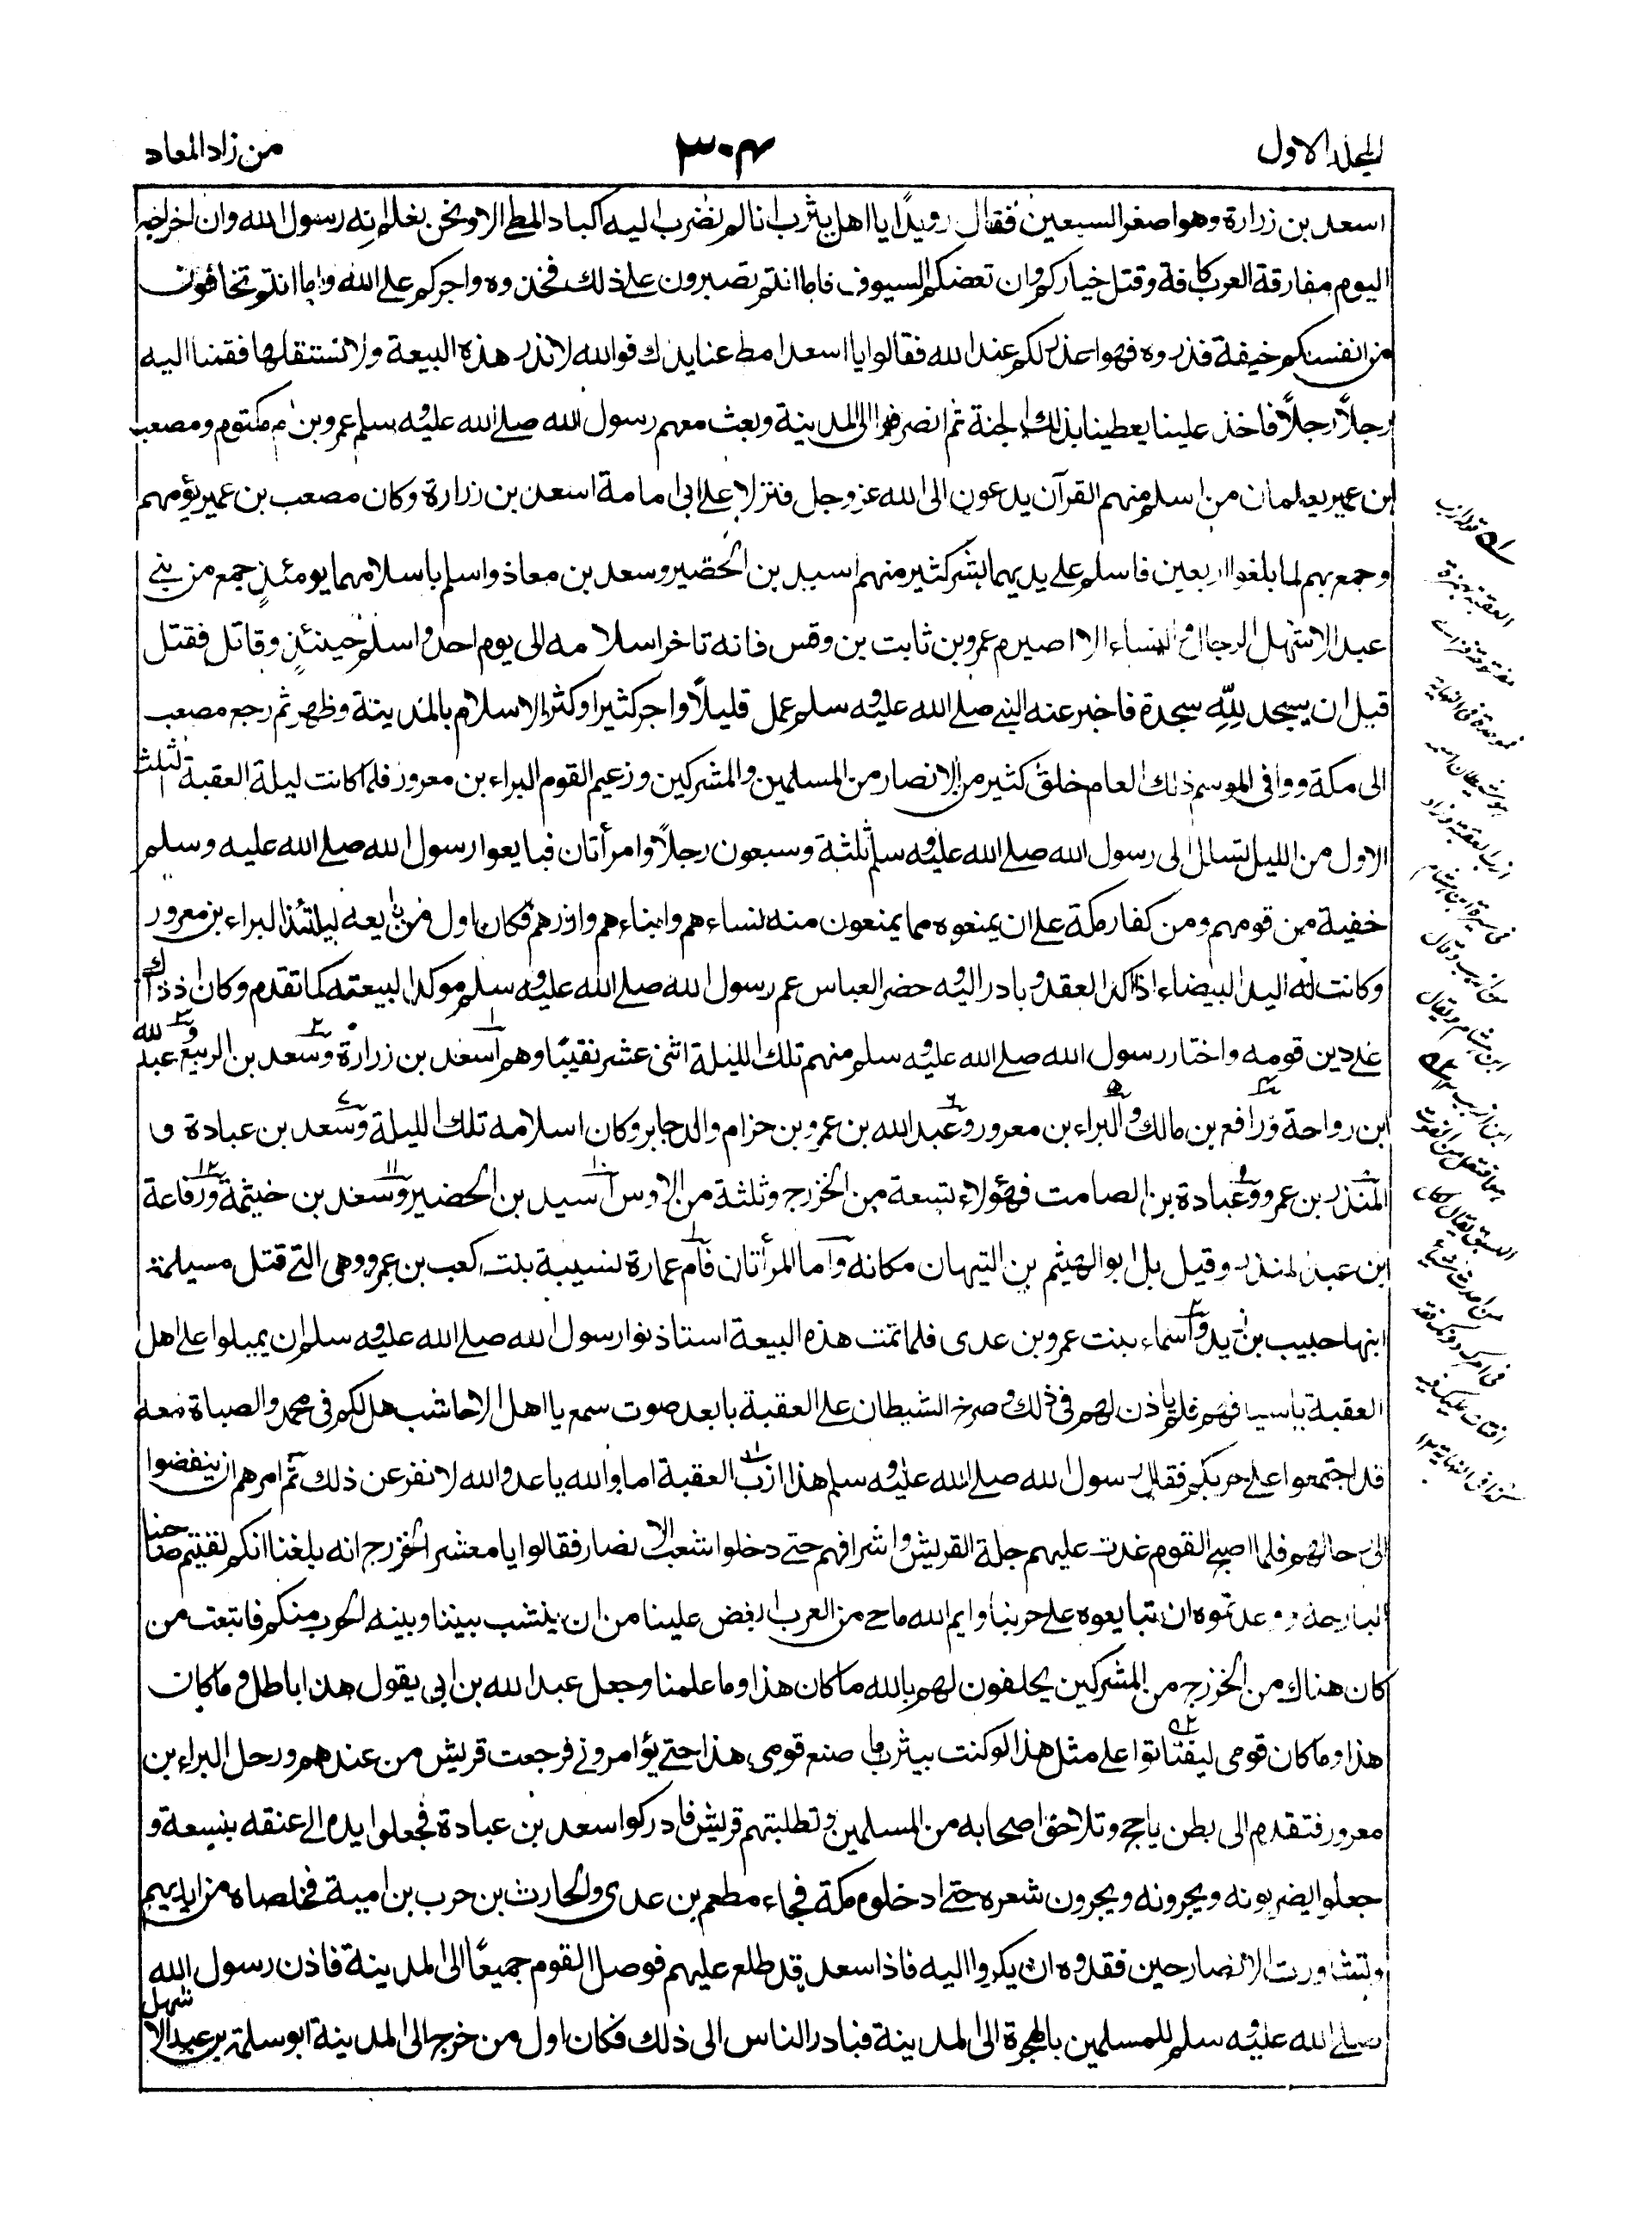 المجلد الاول
٣٠٤
من زاد المعاد
اسعد بن زرارة وهو اصغر السبعين فقال رويدًا يا اهل يثرب انا لم نضرب اليه اكباد المطى الا ونحن نعلم انه رسول الله وان اخراجه
اليوم مفارقة العرب كافة وقتل خياركم وان تعضكم السيوف فاما انتم تصبرون على ذلك فخذوه واجركم على الله واما انتم تخافون
من انفسكم خيفة فذروه فهو اعذر لكم عند الله فقالوا يا اسعد امط عنا يدك فوالله لا نذر هذه البيعة ولا نستقلها فقمنا اليه
رجلاً رجلاً فاخذ علينا يعطينا بذلك الجنة ثم انصرفوا الى المدينة وبعث معهم رسول الله صلى الله عليه وسلم عمرو بن ام مكتوم ومصعب
ابن عمير يعلمان من اسلم منهم القرآن يدعون الى الله عز وجل فنزلا على ابى امامة اسعد بن زرارة وكان مصعب بن عمير يؤمهم
وجمع بهم لما بلغوا اربعين فاسلم على يديهما بشر كثير منهم اسيد بن الحضير وسعد بن معاذ واسلم باسلامهما يومئذٍ جمع من بنى
عبد الاشهل الرجال والنساء الا اصيرم عمرو بن ثابت بن وقس فانه تاخر اسلامه الى يوم احد واسلم حينئذٍ وقاتل فقتل
قبل ان يسجد لله سجدة فاخبر عنه النبى صلى الله عليه وسلم عمل قليلاً واجر كثيرا وكثر الاسلام بالمدينة وظهر ثم رجع مصعب
الى مكة ووافى الموسم ذلك العام خلق كثير من الانصار من المسلمين والمشركين وزعيم القوم البراء بن معرور فلما كانت ليلة العقبة الثلث
الاول من الليل تسلل الى رسول الله صلى الله عليه وسلم ثلثة وسبعون رجلاً وامرأتان فبايعوا رسول الله صلى الله عليه وسلم
خفية من قومهم ومن كفار مكة على ان يمنعوه مما يمنعون منه نساءهم وابناءهم وازرهم فكان اول من بايعه ليلتئذ البراء بن معرور
وكانت له اليد البيضاء اذ اكد العقد وبادر اليه حضر العباس عم رسول الله صلى الله عليه وسلم موكدا لبيعته كما تقدم وكان اذ ذاك
على دين قومه واختار رسول الله صلى الله عليه وسلم منهم تلك الليلة اثنى عشر نقيبًا وهم اسعد بن زرارة وسعد بن الربيع وعبد الله
ابن رواحة ورافع بن مالك والبراء بن معرور وعبد الله بن عمرو بن حزام والد جابر وكان اسلامه تلك الليلة وسعد بن عبادة و
المنذر بن عمرو وعبادة بن الصامت فهؤلاء تسعة من الخزرج وثلثة من الاوس اسيد بن الحضير وسعد بن خيثمة ورفاعة
ابن عبد المنذر وقيل بل ابو الهيثم بن التيهان مكانه واما المرأتان فام عمارة نسيبة بنت كعب بن عمرو وهى التى قتل مسيلمة
ابنها حبيب بن زيد واسماء بنت عمرو بن عدى فلما تمت هذه البيعة استاذنوا رسول الله صلى الله عليه وسلم ان يميلوا على اهل
العقبة باسيافهم فلم ياذن لهم فى ذلك وصرخ الشيطان على العقبة بابعد صوت سمع يا اهل الاخاشب هل لكم فى محمد والصباة معه
قد اجتمعوا على حربكم فقال رسول الله صلى الله عليه وسلم هذا ازب العقبة اما والله يا عدو الله لا نفرغن ذلك ثم امرهم ان ينفضوا
الى رحالهم فلما اصبح القوم غدت عليهم جلة القريش واشرافهم حتى دخلوا شعب الانصار فقالوا يا معشر الخزرج انه بلغنا انكم لقيتم صاحبنا
البارحة ووعدتموه ان تبايعوه على حربنا وايم الله ما حى من العرب ابغض علينا من ان ينشب بيننا وبينه الحرب منكم فانبعث من
كان هناك من الخزرج من المشركين يحلفون لهم بالله ما كان هذا وما علمنا وجعل عبد الله بن ابى يقول هذا باطل وما كان
هذا وما كان قومى ليفتاتوا على مثل هذا لو كنت بيثرب ما صنع قومى هذا حتى يؤامرونى فرجعت قريش من عندهم ورحل البراء بن
معرور فتقدم الى بطن ياجج وتلاحق اصحابه من المسلمين وتطلبتهم قريش فادركوا سعد بن عبادة فجعلوا يده الى عنقه بنسعة و
جعلوا يضربونه ويجرونه ويجرون شعره حتى ادخلوه مكة فجاء مطعم بن عدى والحارث بن حرب بن امية فخلصاه من ايديهم
وتشاورت الانصار حين فقدوه ان يكروا اليه فاذا سعد قد طلع عليهم فوصل القوم جميعًا الى المدينة فاذن رسول الله
صلى الله عليه وسلم للمسلمين بالهجرة الى المدينة فبادر الناس الى ذلك فكان اول من خرج الى المدينة ابو سلمة بن عبد الاشهل
قوله ازب
العقبة بهمزة